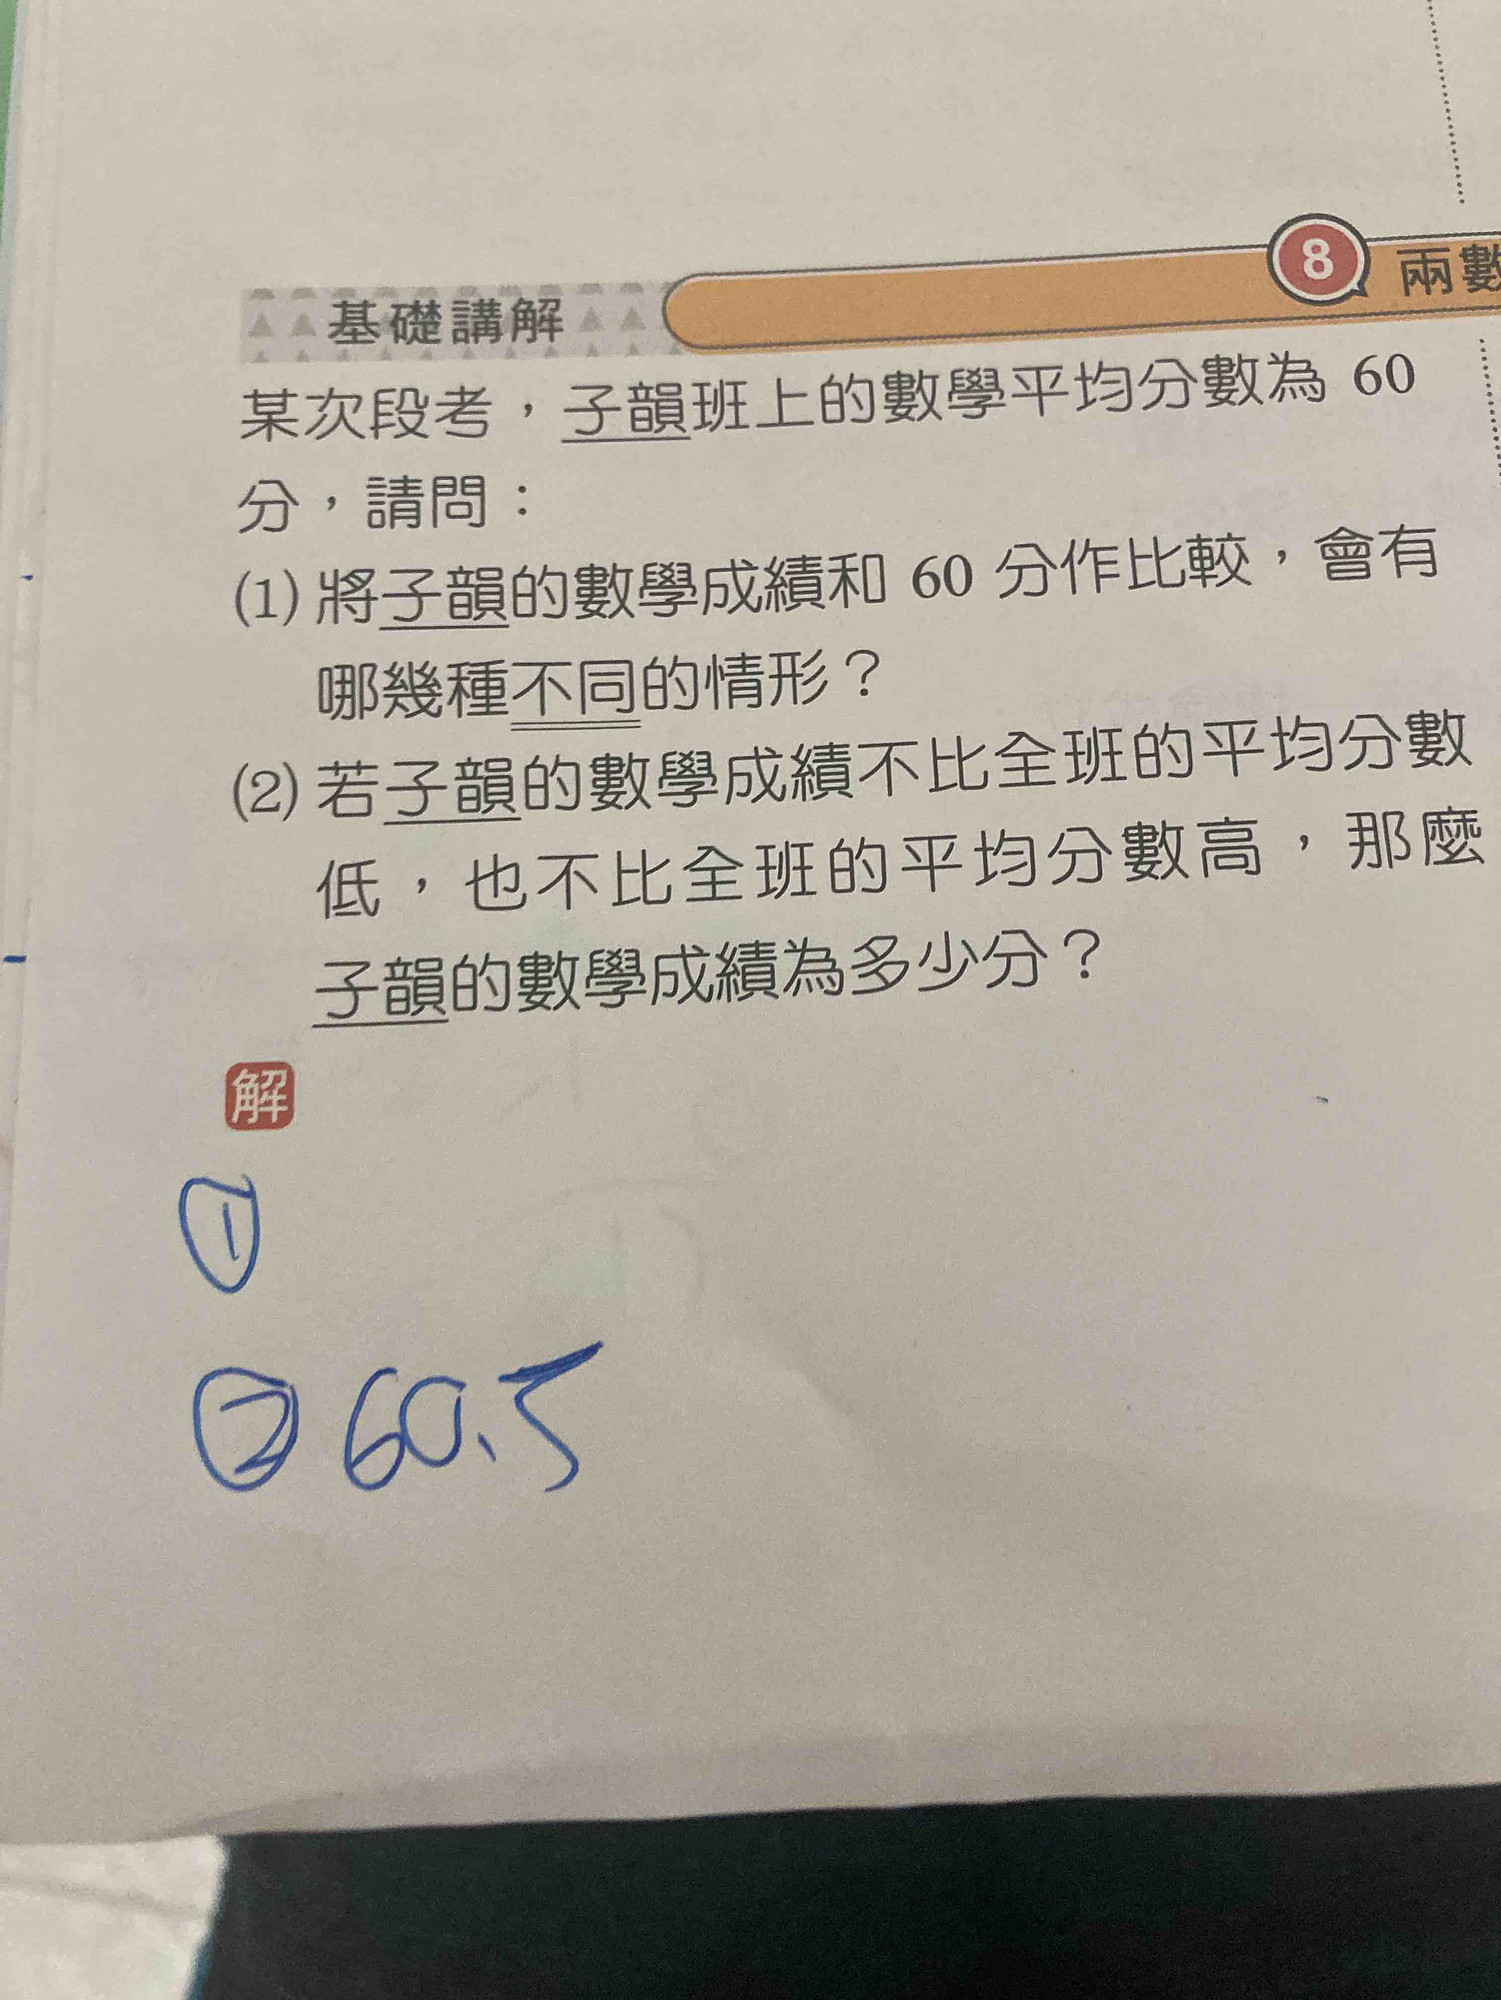 8 兩數
基礎講解
某次段考，子韻班上的數學平均分數為 60
分，請問：
(1) 將子韻的數學成績和 60 分作比較，會有
哪幾種不同的情形？
(2) 若子韻的數學成績不比全班的平均分數
低，也不比全班的平均分數高，那麼
子韻的數學成績為多少分？
解
①
② 60.5